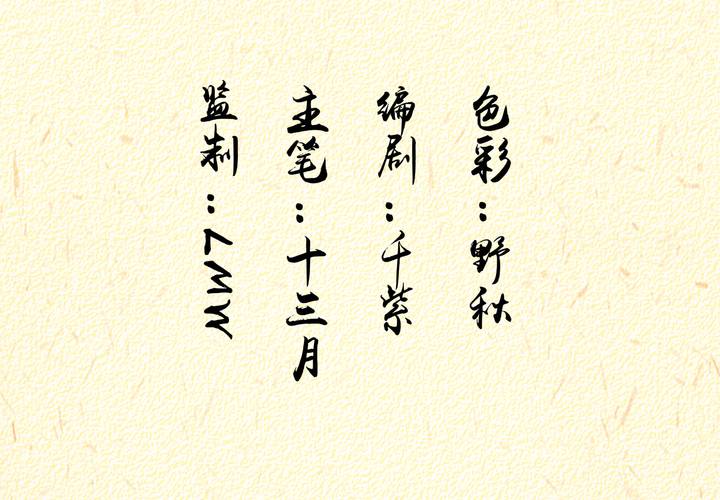 色彩：野秋
编剧：千紫
主笔：十三月
监制：LMW